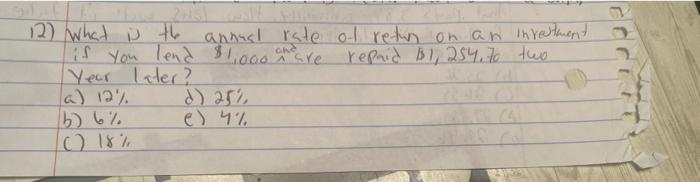 12) What is the annual rate of return on an investment
if you lend $1,000 and are repaid $1,254.70 two
Year later?
a) 12% d) 25%
b) 6% e) 4%
c) 18%